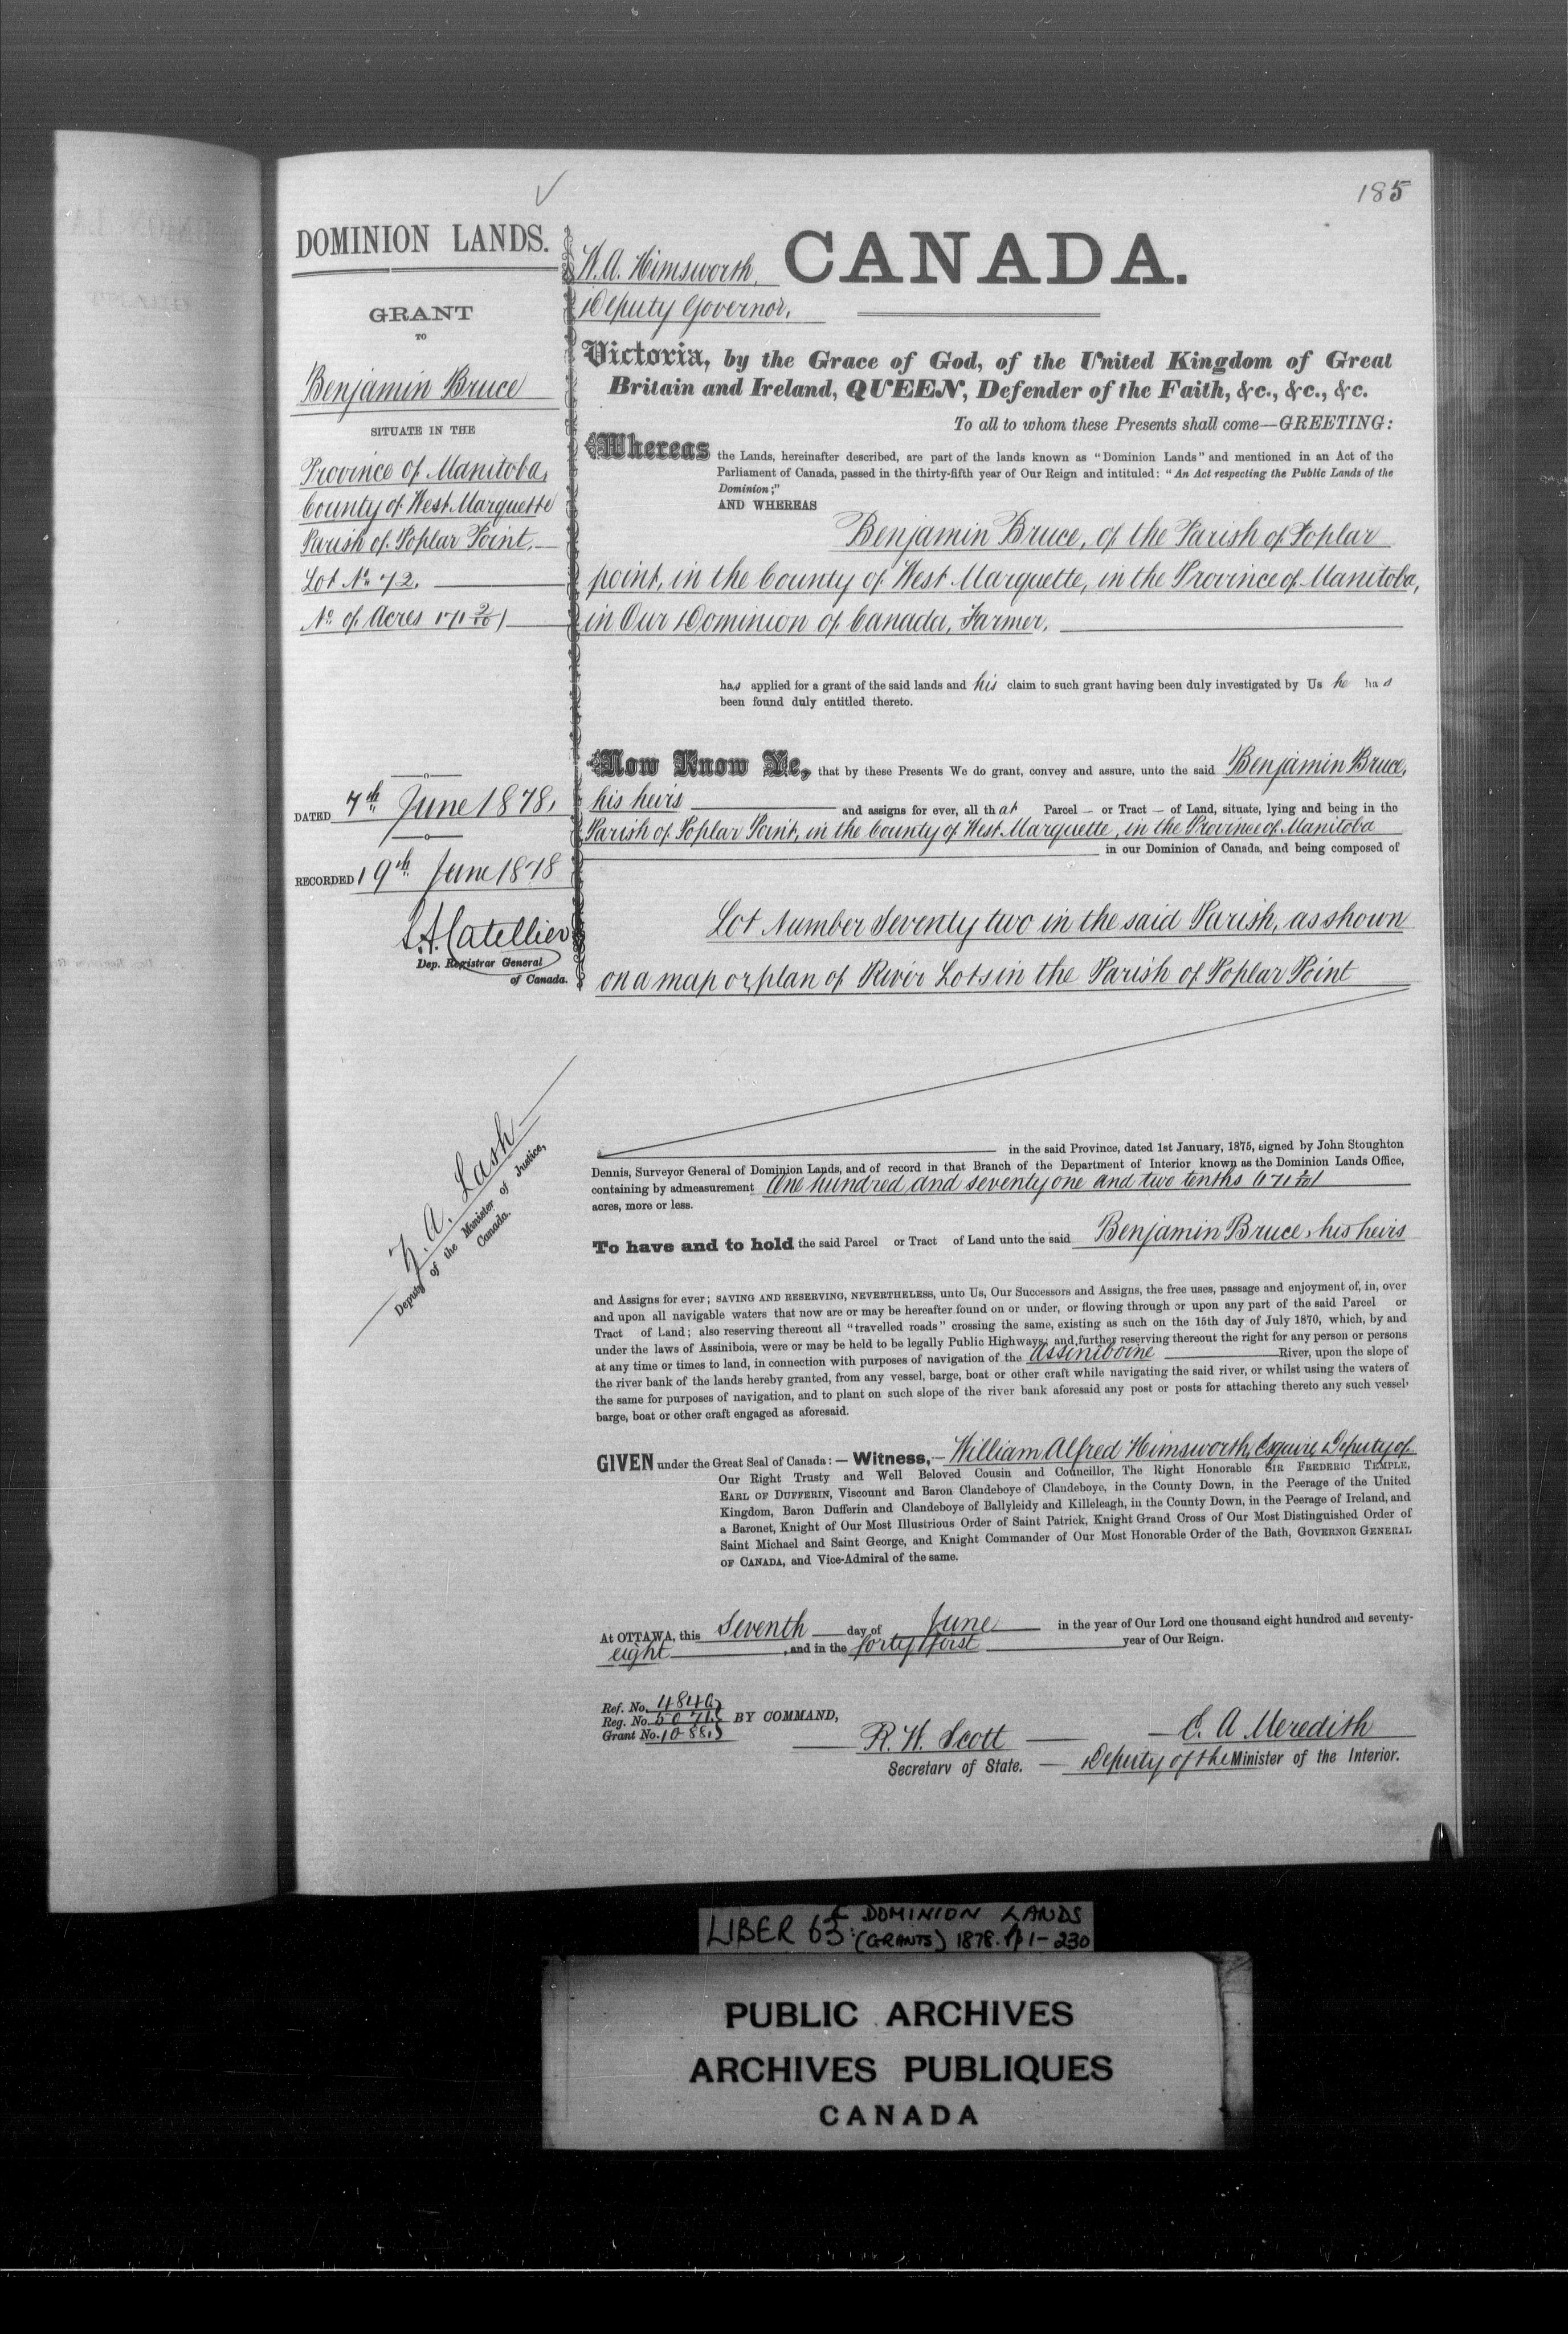 185
DOMINION LANDS.
GRANT
TO
Benjamin Bruce
SITUATE IN THE
Province of Manitoba,
County of West Marquette
Parish of Poplar Point,
Lot No. 72.
No. of Acres 171 2/10
DATED 7th June 1878,
RECORDED 19th June 1878
Dep. Registrar General
of Canada.
Z. A. Lash
Deputy of the Minister of Justice,
Canada.
W. A. Himsworth,
Deputy Governor,
CANADA.
Victoria, by the Grace of God, of the United Kingdom of Great
Britain and Ireland, QUEEN, Defender of the Faith, &c., &c., &c.
To all to whom these Presents shall come—GREETING:
Whereas the Lands, hereinafter described, are part of the lands known as "Dominion Lands" and mentioned in an Act of the
Parliament of Canada, passed in the thirty-fifth year of Our Reign and intituled: "An Act respecting the Public Lands of the
Dominion;"
AND WHEREAS
Benjamin Bruce, of the Parish of Poplar
point, in the County of West Marquette, in the Province of Manitoba,
in Our Dominion of Canada, Farmer,
has applied for a grant of the said lands and his claim to such grant having been duly investigated by Us he has
been found duly entitled thereto.
Now Know Ye, that by these Presents We do grant, convey and assure, unto the said Benjamin Bruce,
his heirs and assigns for ever, all that Parcel — or Tract — of Land, situate, lying and being in the
Parish of Poplar Point, in the County of West Marquette, in the Province of Manitoba
in our Dominion of Canada, and being composed of
Lot Number Seventy two in the said Parish, as shown
on a map or plan of River Lots in the Parish of Poplar Point
in the said Province, dated 1st January, 1875, signed by John Stoughton
Dennis, Surveyor General of Dominion Lands, and of record in that Branch of the Department of Interior known as the Dominion Lands Office,
containing by admeasurement One hundred and seventy one and two tenths (171 2/10)
acres, more or less.
To have and to hold the said Parcel or Tract of Land unto the said Benjamin Bruce, his heirs
and Assigns for ever; SAVING AND RESERVING, NEVERTHELESS, unto Us, Our Successors and Assigns, the free uses, passage and enjoyment of, in, over
and upon all navigable waters that now are or may be hereafter found on or under, or flowing through or upon any part of the said Parcel or
Tract of Land; also reserving thereout all "travelled roads" crossing the same, existing as such on the 15th day of July 1870, which, by and
under the laws of Assiniboia, were or may be held to be legally Public Highways; and further reserving thereout the right for any person or persons
at any time or times to land, in connection with purposes of navigation of the Assiniboine River, upon the slope of
the river bank of the lands hereby granted, from any vessel, barge, boat or other craft while navigating the said river, or whilst using the waters of
the same for purposes of navigation, and to plant on such slope of the river bank aforesaid any post or posts for attaching thereto any such vessel,
barge, boat or other craft engaged as aforesaid.
GIVEN under the Great Seal of Canada:— Witness,— William Alfred Himsworth, Esquire, Deputy of
Our Right Trusty and Well Beloved Cousin and Councillor, The Right Honorable SIR FREDERIC TEMPLE,
EARL OF DUFFERIN, Viscount and Baron Clandeboye of Clandeboye, in the County Down, in the Peerage of the United
Kingdom, Baron Dufferin and Clandeboye of Ballyleidy and Killeleagh, in the County Down, in the Peerage of Ireland, and
a Baronet, Knight of Our Most Illustrious Order of Saint Patrick, Knight Grand Cross of Our Most Distinguished Order of
Saint Michael and Saint George, and Knight Commander of Our Most Honorable Order of the Bath, GOVERNOR GENERAL
OF CANADA, and Vice-Admiral of the same.
At OTTAWA, this Seventh day of June in the year of Our Lord one thousand eight hundred and seventy-
eight, and in the forty first year of Our Reign.
Ref. No.
Reg. No.
Grant No.
BY COMMAND,
R. W. Scott
Secretary of State.
E. A. Meredith
Deputy of the Minister of the Interior.
LIBER 63: DOMINION LANDS
(GRANTS) 1878. pp 1-230
PUBLIC ARCHIVES
ARCHIVES PUBLIQUES
CANADA